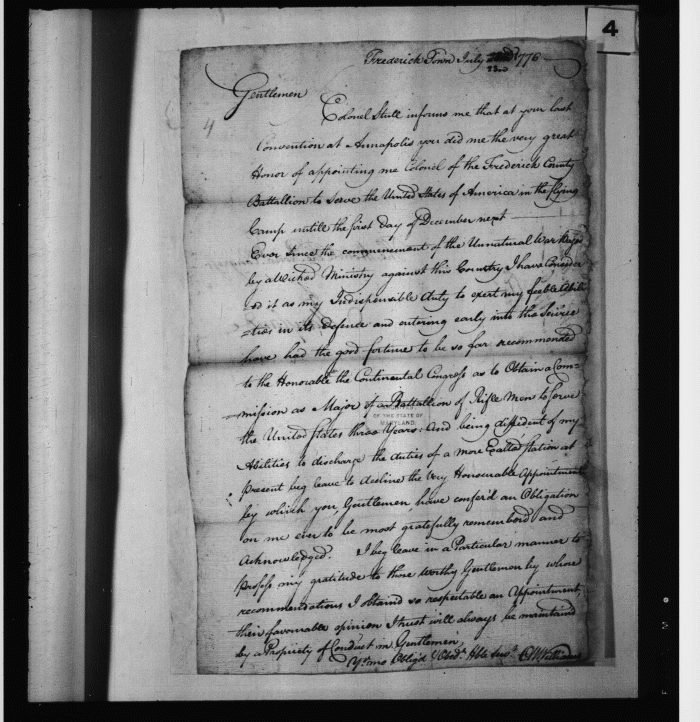 4
Frederick Town July 23rd 1776
Gentlemen
4
Colonel Stull informs me that at your last
Convention at Annapolis you did me the very great
Honor of appointing me Colonel of the Frederick County
Battallion to serve the United States of America in the flying
Camp untill the first day of December next
Ever since the commencement of the Unnatural War
by a Wicked Ministry against this Country I have Consider
-ed it as my Indispensible duty to exert my feeble Abili
-ties in its Defence and entering early into the Service
have had the good fortune to be so far recommended
to the Honorable the Continental Congress as to Obtain a Com=
mission as Major of a Battallion of Rifle Men to serve
OF THE STATE OF
MARYLAND
the United States three Years: And being diffident of my
Abilities to discharge the duties of a more Exalted station at
present beg leave to decline the Very Honourable Appointment
by which you, Gentlemen, have confer'd an Obligation
on me ever to be most gratefully remember'd and
Acknowledged. I beg leave in a Particular manner to
profess my gratitude to those Worthy Gentlemen by whose
recommendations I obtaind so respectable an Appointment,
their favourable opinion I trust will always be maintaind
by a Propriety of Conduct in Gentlemen,
Yr. mo Oblig'd & Obedt. Hble Servt. O H Williams